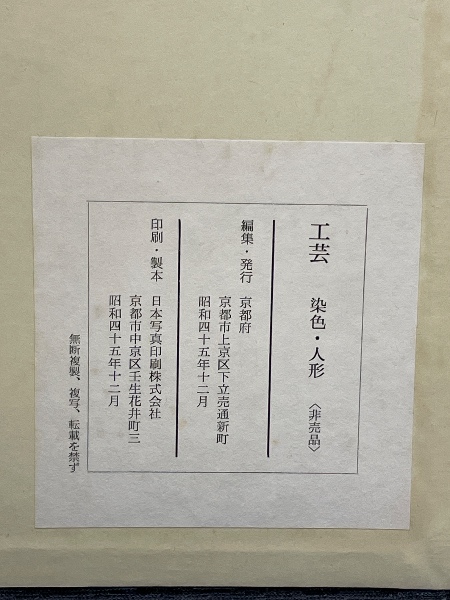 工芸 染色・人形 〈非売品〉
編集・発行 京都府
京都市上京区下立売通新町
昭和四十五年十二月
印刷・製本 日本写真印刷株式会社
京都市中京区壬生花井町三
昭和四十五年十二月
無断複製、複写、転載を禁ず